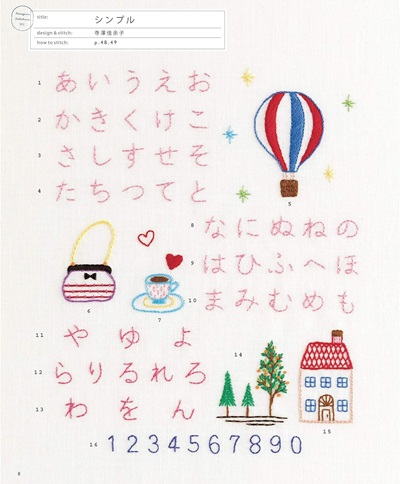 title:
シンプル
design & stitch:
寺澤佳奈子
how to stitch:
p.48,49
1 あいうえお
2 かきくけこ
3 さしすせそ
4 たちつてと
5
6
7
8 なにぬねの
9 はひふへほ
10 まみむめも
11 やゆよ
12 らりるれろ
13 わをん
14
15
16 1234567890